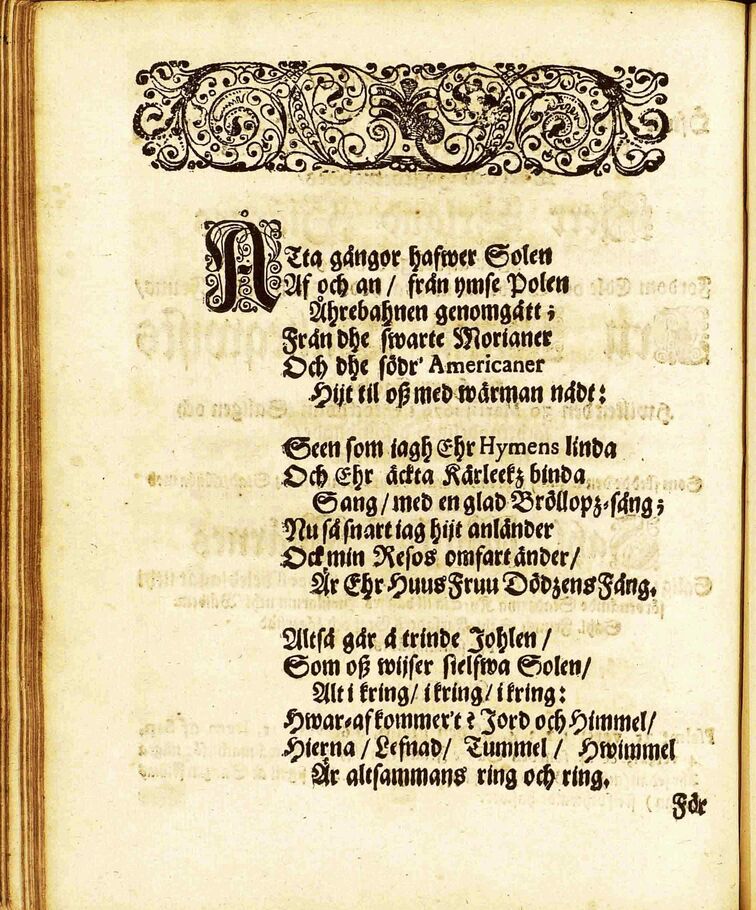 Åtta gångor hafwer Solen
Af och an / från ymse Polen
Åhrebahnen genomgått ;
Från dhe swarte Morianer
Och dhe södr' Americaner
Hijt til oß med wärman nådt :
Seen som iagh Ehr Hymens linda
Och Ehr äckta Kärleekz binda
Sang / med en glad Bröllopz-sång ;
Nu så snart iag hijt anländer
Ock min Resos omfart änder /
Är Ehr Huus Fruu Dödzens Fång.
Altså går å trinde Johlen /
Som oß wijser sielfwa Solen /
Alt i kring / i kring / i kring :
Hwar-af kommer't ? Jord och Himmel /
Hierna / Lefnad / Tummel / Hwimmel
Är altsammans ring och ring.
För